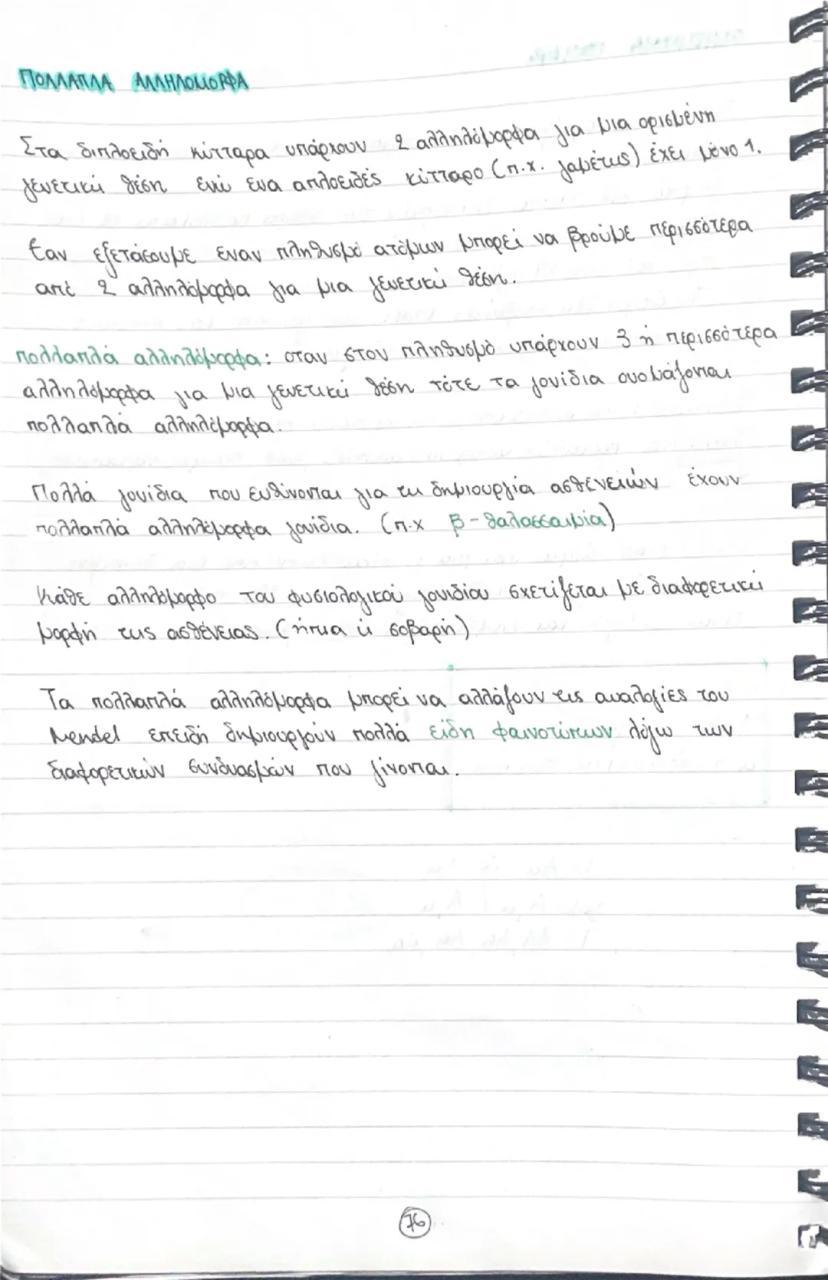 ΠΟΛΛΑΠΛΑ ΑΛΛΗΛΟΜΟΡΦΑ
Στα διπλοειδή κύτταρα υπάρχουν 2 αλληλόμορφα για μια ορισμένη
γενετική θέση ενώ ενα απλοειδές κύτταρο (π.χ. γαμέτης) έχει μόνο 1.
Εαν εξετάσουμε εναν πληθυσμό ατόμων μπορεί να βρούμε περισσότερα
από 2 αλληλόμορφα για μια γενετική θέση.
πολλαπλά αλληλόμορφα: οταν στον πληθυσμό υπάρχουν 3 ή περισσότερα
αλληλόμορφα για μια γενετική θέση τότε τα γονίδια ονομάζονται
πολλαπλά αλληλόμορφα.
Πολλά γονίδια που ευθύνονται για τη δημιουργία ασθενειών έχουν
πολλαπλά αλληλόμορφα γονίδια. (π.χ β-θαλασσαιμία)
Κάθε αλληλόμορφο του φυσιολογικού γονιδίου σχετίζεται με διαφορετική
μορφή της ασθένειας. (ήπια ή σοβαρή)
Τα πολλαπλά αλληλόμορφα μπορεί να αλλάξουν τις αναλογίες του
Mendel επειδή δημιουργούν πολλά είδη φαινοτύπων λόγω των
διαφορετικών συνδυασμών που γίνονται.
76